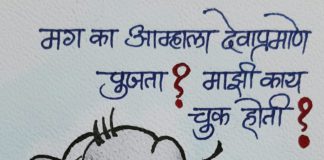 मग का आम्हाला देवाप्रमाणे
पुजता ? माझी काय
चुक होती ?